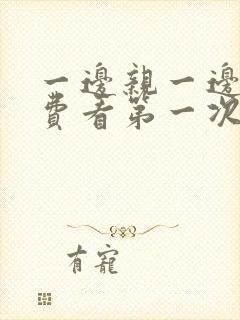 一邊親一邊
費者第一次
有寵